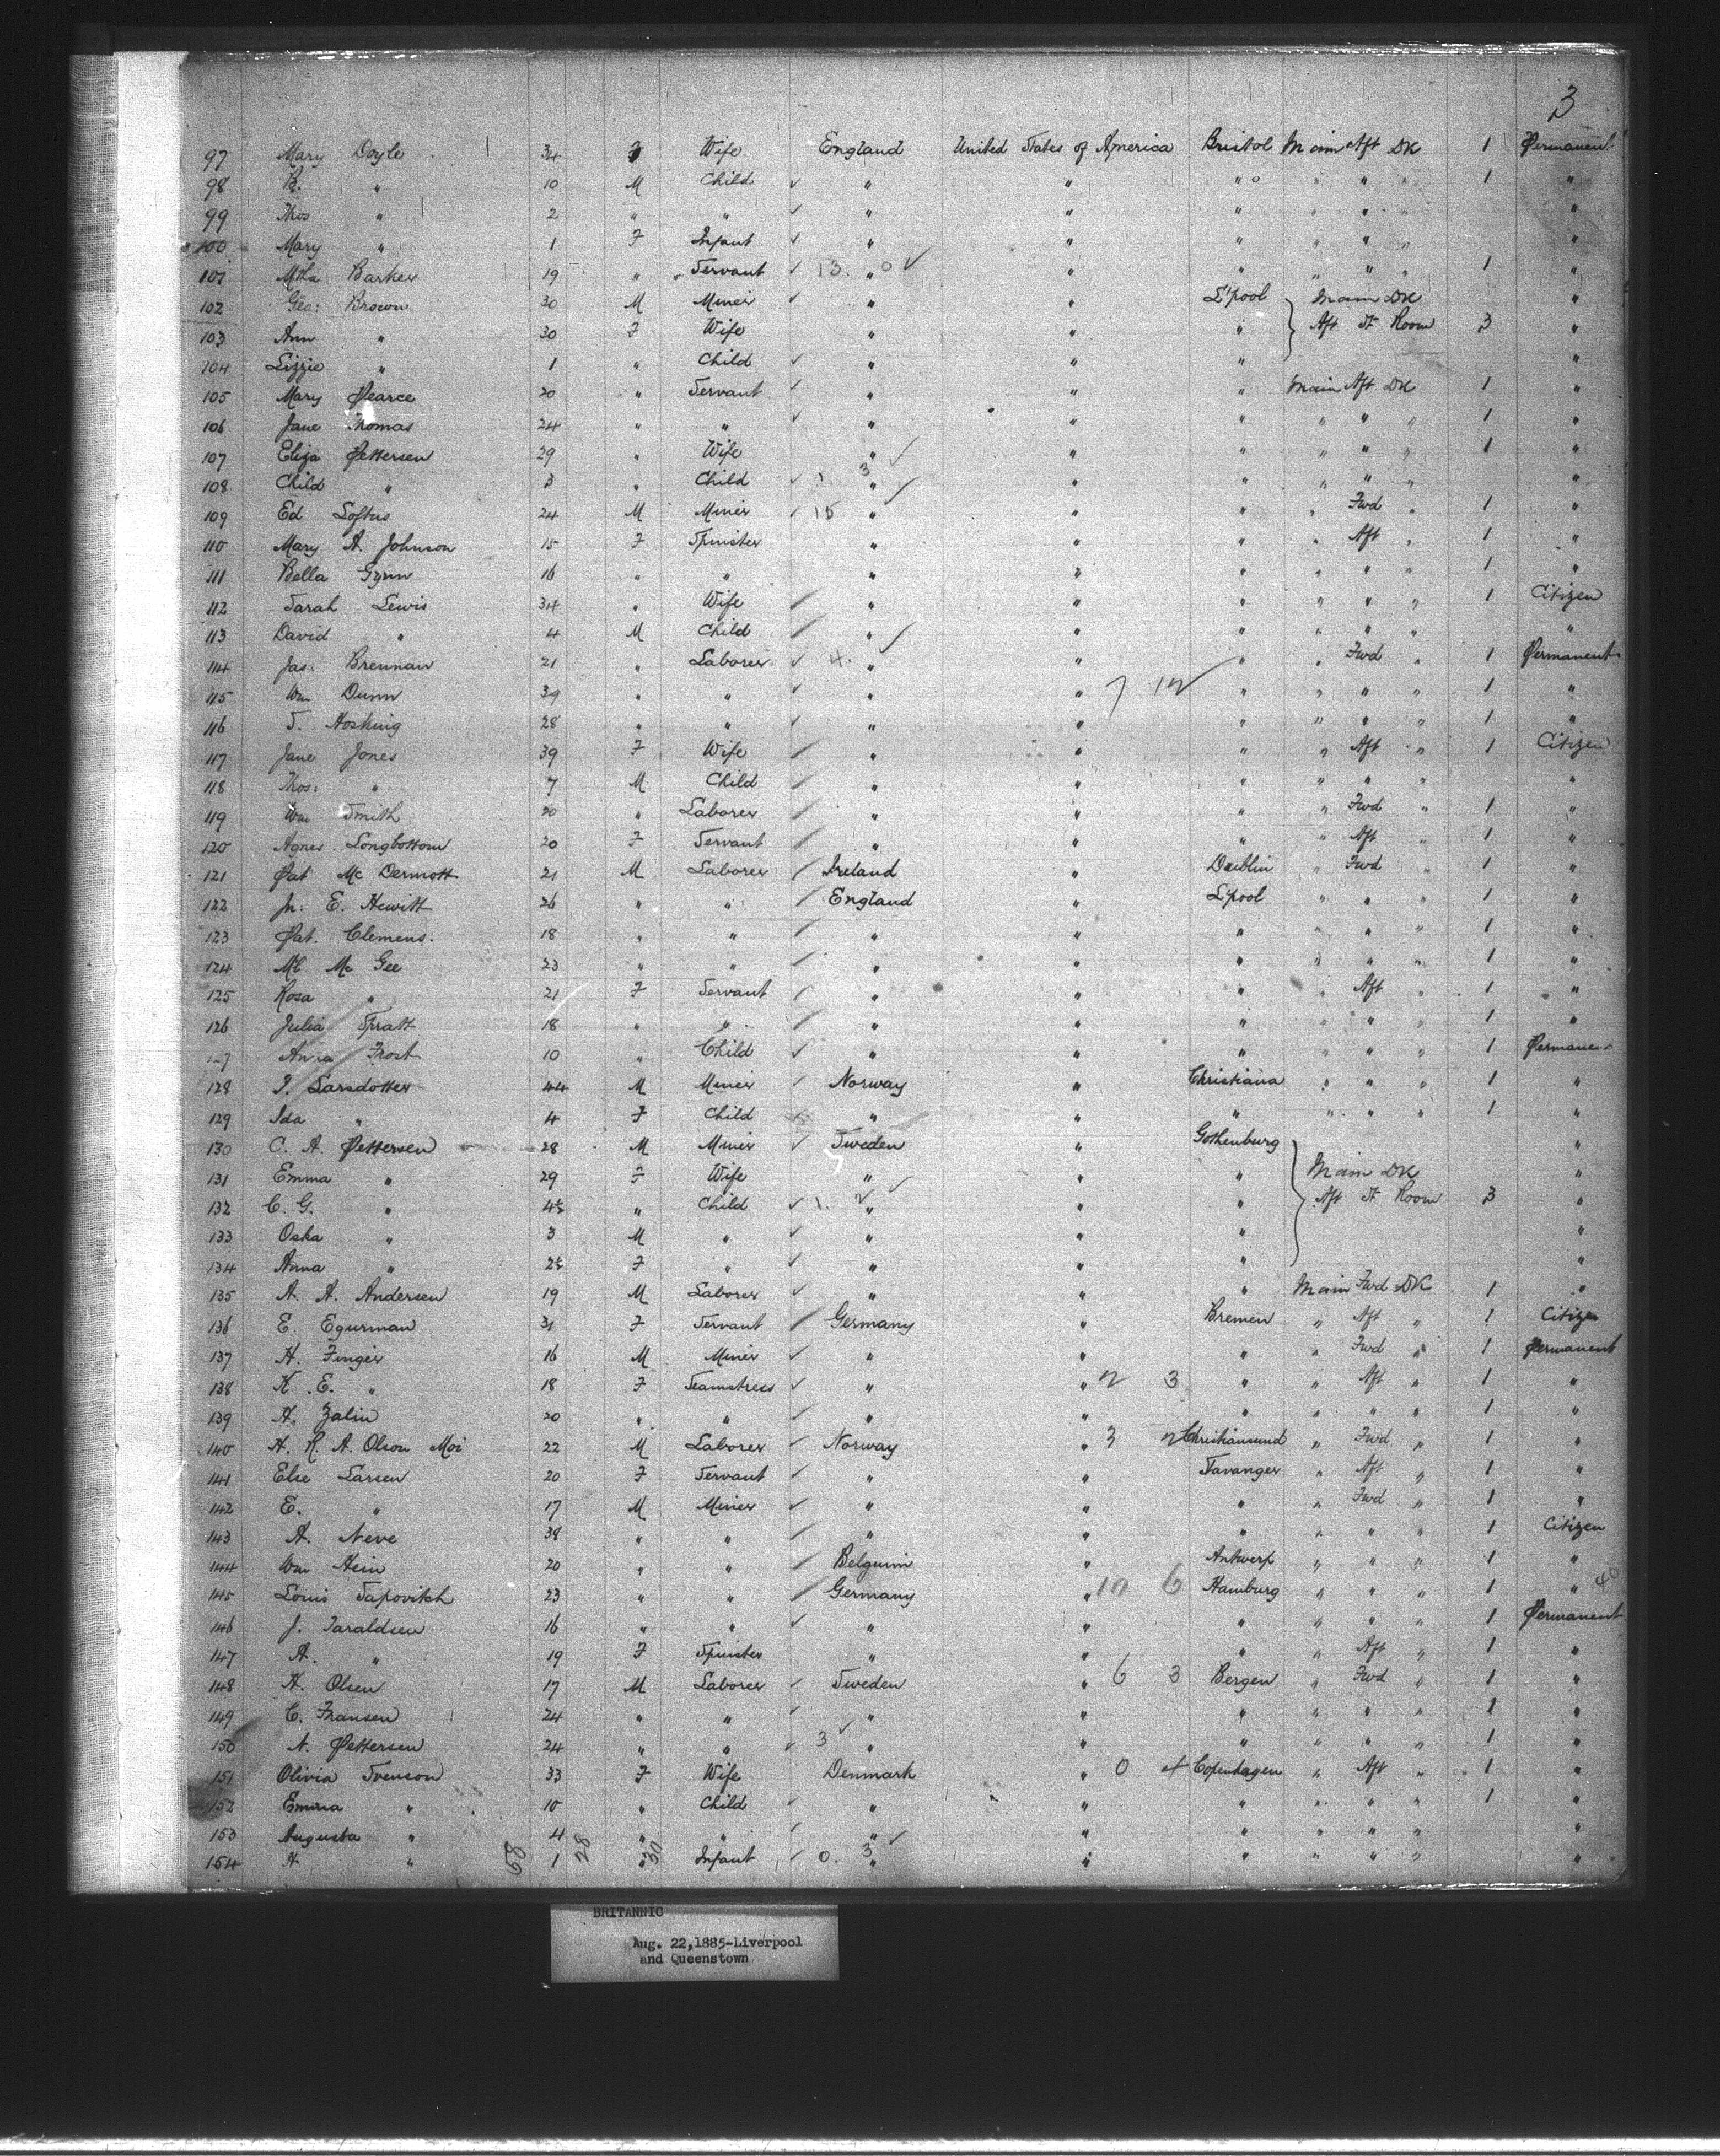 3
97 Mary Doyle 34 F Wife England United States of America Bristol Main Aft DK 1 Permanent
98 R. " 10 M Child " " " " " " 1 "
99 Thos " 2 " " " " " " " " "
100 Mary " 1 F Infant " " " " " " "
101 Barker 19 " Servant 13. " 0 " " " " " 1 "
102 Geo: Brown 30 M Miner " " L'pool Main DK "
103 Ann " 30 F Wife " " " Aft St Room 3 "
104 Lizzie " 1 " Child " " " "
105 Mary Pearce 20 " Servant " " " Main Aft DK 1 "
106 Jane Thomas 24 " " " " " " " " 1 "
107 Eliza Pettersen 29 " Wife " " " " " " 1 "
108 Child " 3 " Child 1. 3 " " " " " " "
109 Ed Loftus 24 M Miner 15 " " " " Fwd " 1 "
110 Mary A. Johnson 15 F Spinster " " " " Aft " 1 "
111 Bella Gynn 16 " " " " " " " " 1 "
112 Sarah Lewis 34 " Wife " " " " " " 1 Citizen
113 David " 4 M Child " " " " " " "
114 Jas: Brennan 21 " Laborer 4. " " " " Fwd " 1 Permanent
115 Wm Dunn 39 " " " " 7 12 " " " " 1 "
116 T. Hosking 28 " " " " " " " " 1 "
117 Jane Jones 39 F Wife " " " " Aft " 1 Citizen
118 Thos: " 7 M Child " " " " " " "
119 Wm Smith 20 " Laborer " " " " Fwd " 1 "
120 Agnes Longbottom 20 F Servant " " " " Aft " 1 "
121 Pat Mc Dermott 21 M Laborer Ireland " Dublin " Fwd " 1 "
122 Jn. E. Hewitt 26 " " England " L'pool " " " 1 "
123 Pat. Clemens. 18 " " " " " " " " 1 "
124 Ml Mc Gee 23 " " " " " " " " 1 "
125 Rosa " 21 F Servant " " " " Aft " 1 "
126 Julia Spratt 18 " " " " " " " " 1 "
127 Anna Frost 10 " Child " " " " " " 1 Permanent
128 I. Larsdotter 44 M Miner Norway " Christiana " " " 1 "
129 Ida " 4 F Child " " " " " " 1 "
130 C. A. Pettersen 28 M Miner Sweden " Gothenburg "
131 Emma " 29 F Wife " " " Main DK "
132 C. G. " " Child 1. " " " Aft St Room 3 "
133 Oska " 3 M " " " " "
134 Anna " F " " " " "
135 A. A. Andersen 19 M Laborer " " " Main Fwd DK 1 "
136 E. Egurman 31 F Servant Germany " Bremen " Aft " 1 Citizen
137 H. Finger 16 M Miner " " " " Fwd " 1 Permanent
138 K. E. " 18 F Seamstress " " 2 3 " " Aft " 1 "
139 A. Zalin 20 " " " " " " " " 1 "
140 H. R. A. Olson Moi 22 M Laborer Norway " 3 2 Christiansund " Fwd " 1 "
141 Else Larsen 20 F Servant " " Stavanger " Aft " 1 "
142 E. " 17 M Miner " " " " Fwd " 1 "
143 A. Neve 38 " " " " " " " " 1 Citizen
144 Wm Hein 20 " " Belguim " Antwerp " " " 1 "
145 Louis Sapovitch 23 " " Germany " 10 6 Hamburg " " " 1 " 40
146 J. Taraldsen 16 " " " " " " " " 1 Permanent
147 A. " 19 F Spinster " " " " Aft " 1 "
148 H. Olsen 17 M Laborer Sweden " 6 3 Bergen " Fwd " 1 "
149 C. Fransen 24 " " " " " " " " 1 "
150 N. Pettersen 24 " " 3 " " " " " " 1 "
151 Olivia Svenson 33 F Wife Denmark " 0 4 Copenhagen " Aft " 1 "
152 Emma " 10 " Child " " " " " " 1 "
153 Augusta " 4 " " " " " " " " "
154 A " 1 " Infant 0. 3 " " " " " " "
58 28 30
BRITANNIC
Aug. 22,1885-Liverpool
and Queenstown